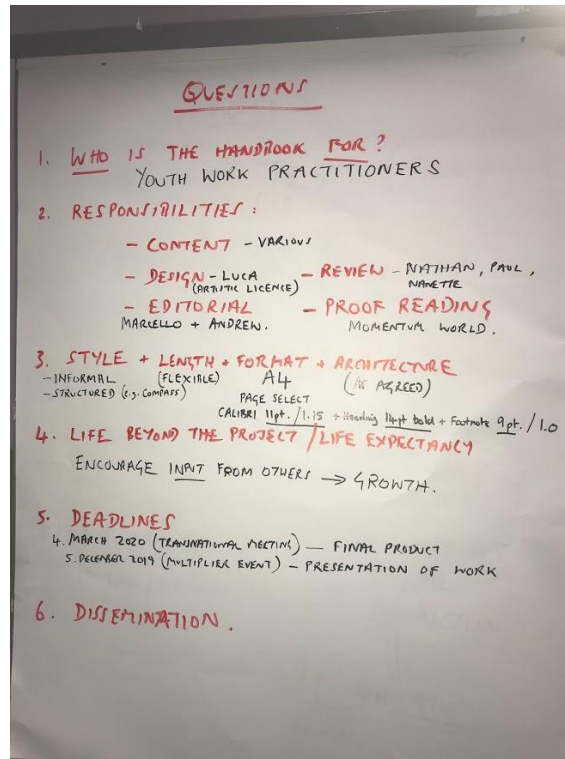 QUESTIONS
1. WHO IS THE HANDBOOK FOR?
YOUTH WORK PRACTITIONERS
2. RESPONSIBILITIES:
- CONTENT - VARIOUS
- DESIGN - LUCA - REVIEW - NATHAN, PAUL,
(ARTISTIC LICENCE) NANETTE
- EDITORIAL - PROOF READING
MARCELLO + ANDREW. MOMENTUM WORLD.
3. STYLE + LENGTH + FORMAT + ARCHITECTURE
- INFORMAL (FLEXIBLE) A4 (AS AGREED)
- STRUCTURED (e.g. COMPASS) PAGE SELECT
CALIBRI 11pt. / 1.15 + Heading 14pt bold + Footnote 9pt. / 1.0
4. LIFE BEYOND THE PROJECT / LIFE EXPECTANCY
ENCOURAGE INPUT FROM OTHERS → GROWTH.
5. DEADLINES
4. MARCH 2020 (TRANSNATIONAL MEETING) — FINAL PRODUCT
5. DECEMBER 2019 (MULTIPLIER EVENT) - PRESENTATION OF WORK
6. DISSEMINATION.